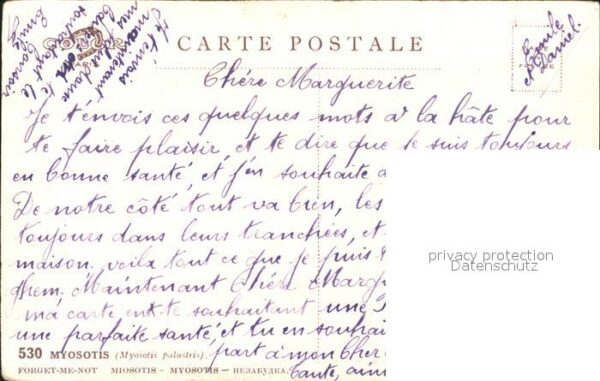 CARTE POSTALE
Emile
et Daniel.
Chére Marguerite
Je t'envois ces quelques mots a la hâte pour
te faire plaisir, et te dire que je suis toujours
en bonne santé, et j'en souhaite a
De notre côté tout va bien, les
toujours dans leurs tranchées, et
maison. voila tout ce que je puis
Maintenant Chére Margu
ma carte ent te souhaitant une
une parfaite santé, et tu en souhai
part à mon Cher
tante, ain
530 MYOSOTIS (Myosotis palustris).
FORGET-ME-NOT MIOSOTIS - MYOSOTIS - НЕЗАБУДКА.
privacy protection
Datenschutz